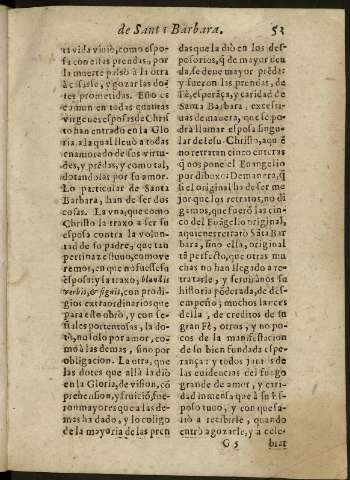 de Santa Barbara. 53
ta vida vivió, como espo-
sa con estas prendas, por
la muerte passò à la otra
à casarse, y gozar las do-
tes prometidas. Esto es
comun en todas quantas
virgenes esposas de Chris
to han entrado en la Glo
ria, a la qual lleuò a todas
enamorado de sus virtu-
des, y prēdas, y como tal,
dotandolas por su amor.
Lo particular de Santa
Barbara, han de ser dos
cosas. La vna, que como
Christo la traxo a ser su
esposa contra la volun-
tad de su padre, que tan
pertinaz estuuo, como ve
remos, en que no fuesse su
ēsposa; y la traxo, blandis
verbis, & signis, con prodi-
gios extraordinarios que
para esto obrò, y con se-
ñales portentosas, la do-
tò, no solo por amor, co-
mo à las demas, sino por
obligacion. La otra, que
las dotes que allà la diò
en la Gloria, de vision, cō
prehension, y fruiciō, fue-
ron mayores que a las de-
mas ha dado, y lo coligo
de la mayoria de las pren
das que la diò en los des-
posorios, q̃ de mayor deu
da, se deue mayor prēdas
y fueron las prendas, de
Fè, esperāça, y caridad de
Santa Barbara, excessi-
uas de manera, que se po-
drà llamar esposa singu-
lar de Iesu-Christo, a quiē
no retratan cinco enteras
q̃ nos pone el Euangelio
por dibuxo: De manera, q̃
si el original ha de ser me
jor que los retratos, no di
gamos, que fuerō las cin-
co del Euāgelio original,
a quien es retrato Sāta Bar
bara, sino ella, original
tā perfecto, que otras mu
chas no han llegado a re-
tratarle, y seruiranos su
historia poderada, de des-
empeño; muchos lances
della, de creditos de su
gran Fè, otros, y no po-
cos de la manifestacion
de su bien fundada espe-
rança: y todos juntos de
las euidencias del fuego
grande de amor, y cari-
dad immensa que à su Es
poso tuuo, y con que sa-
liò a recibirle, quando
entrò a gozarle, y à cele-
G 5 brar